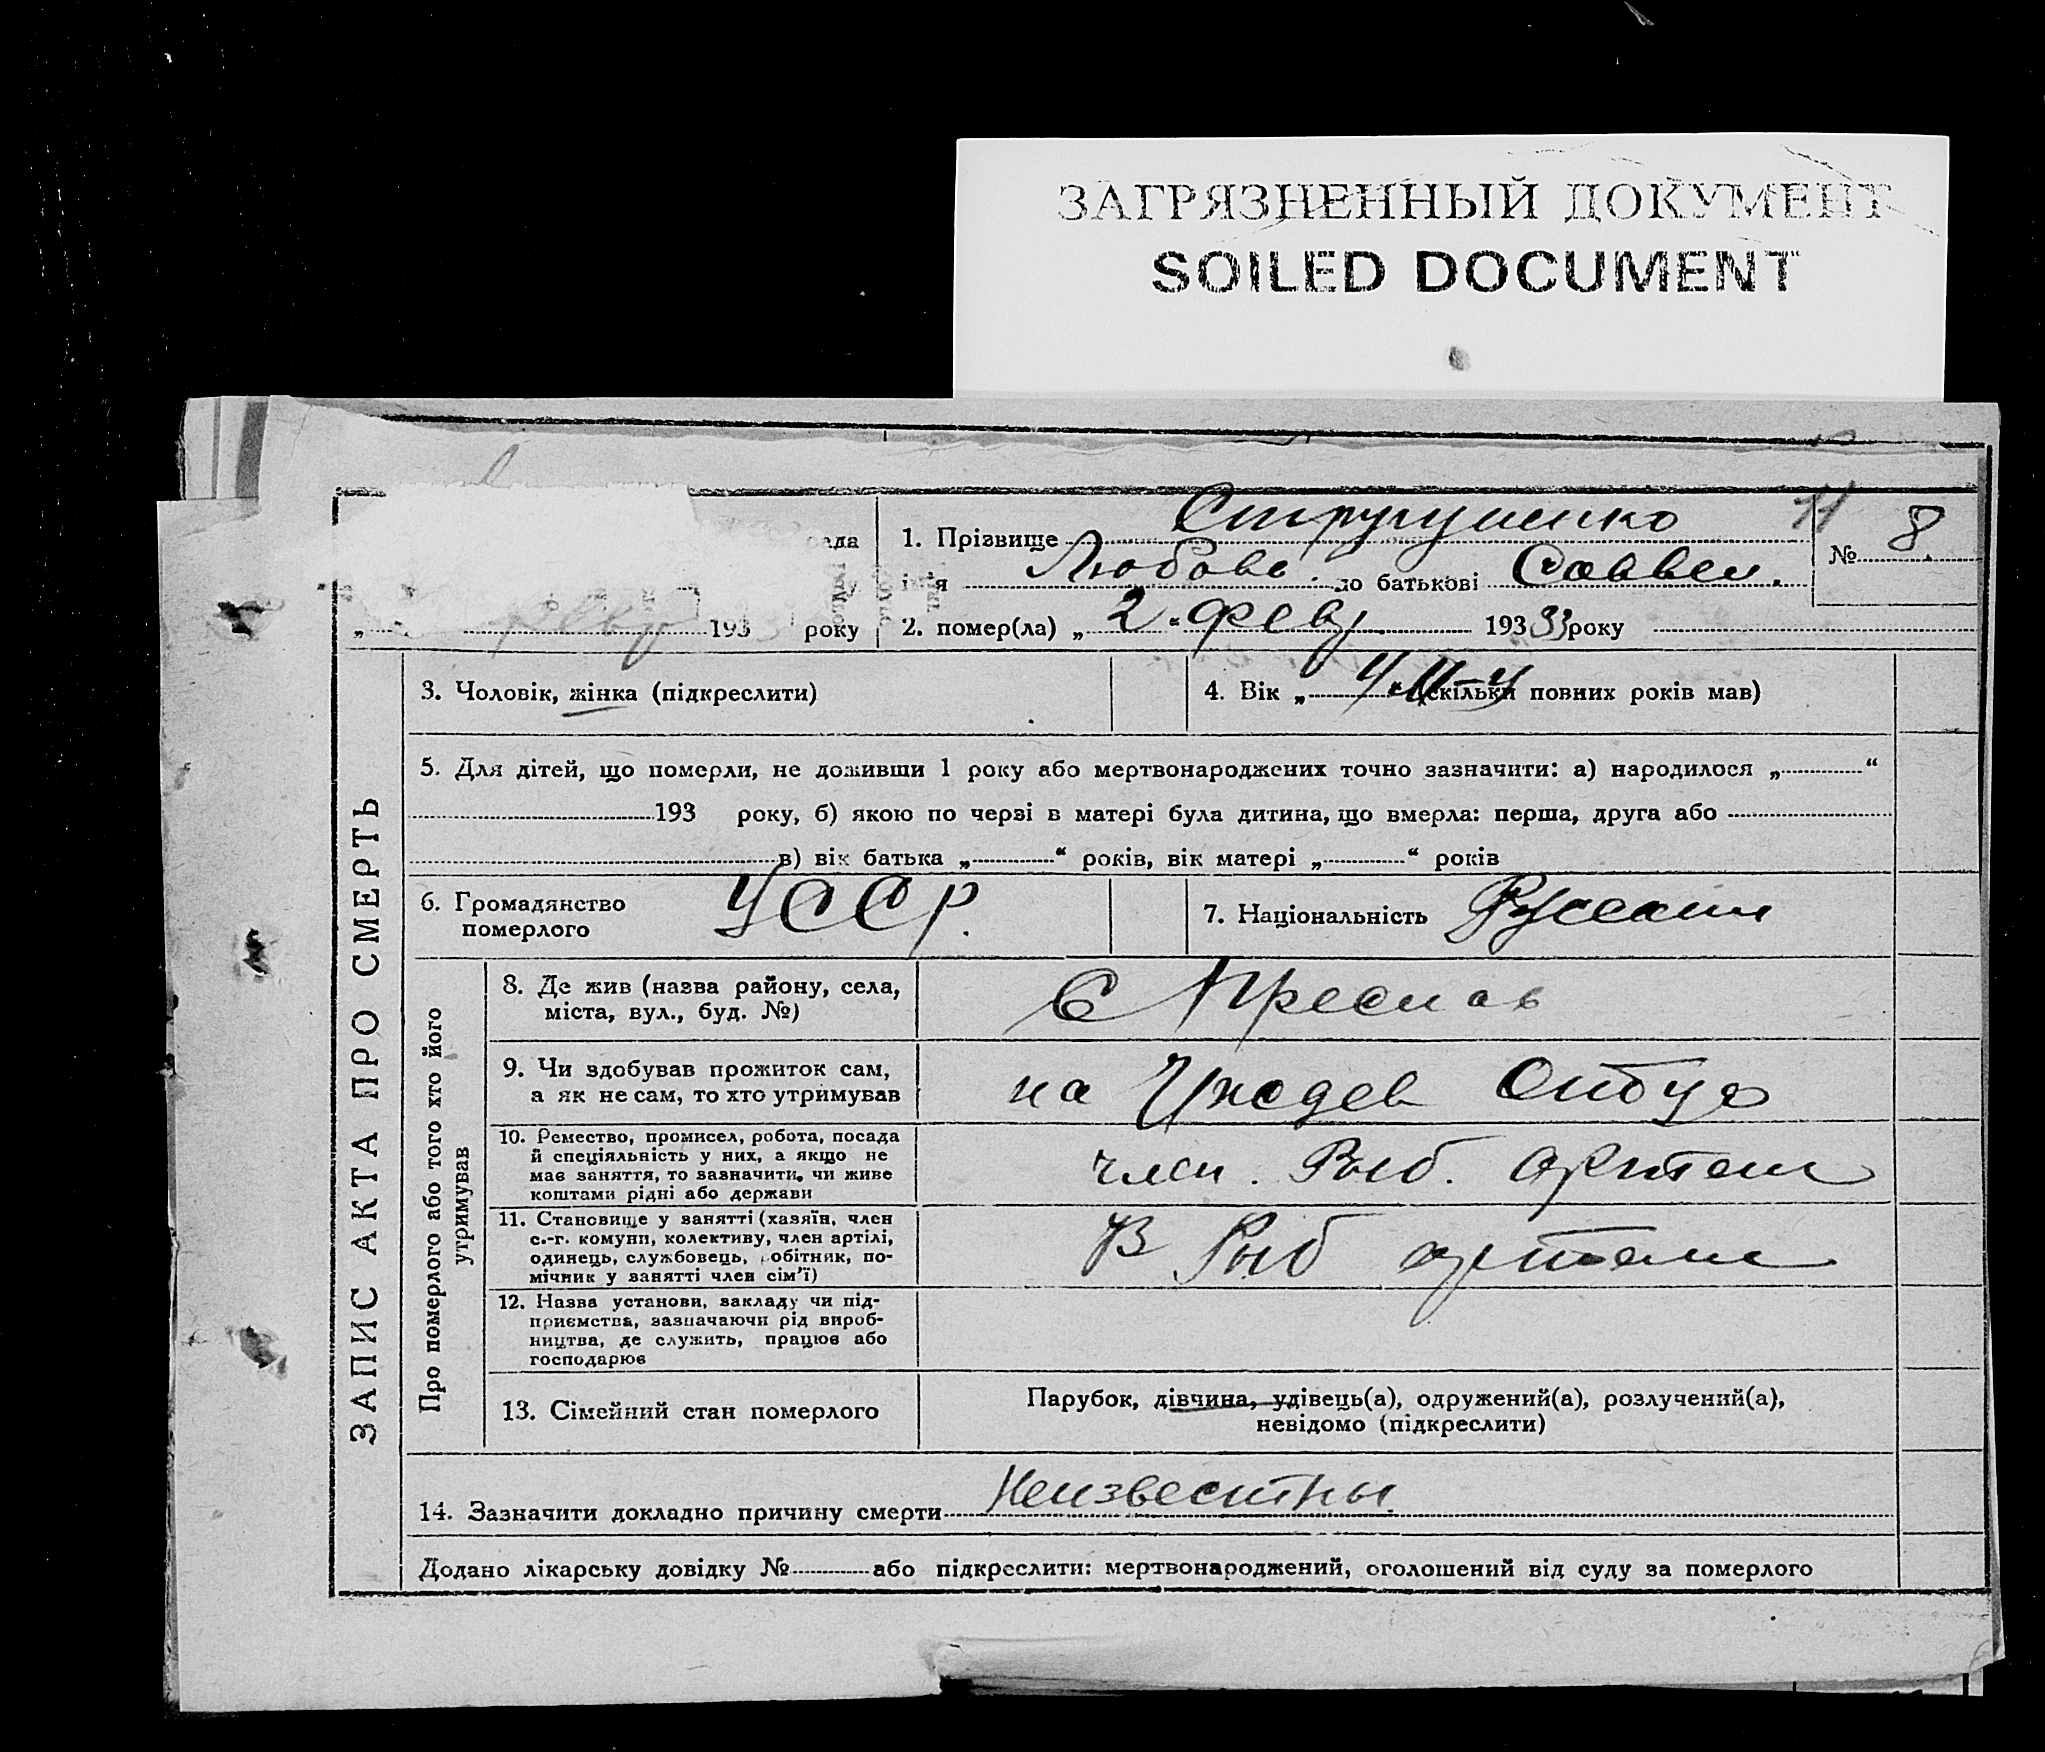 ЗАГРЯЗНЕННЫЙ ДОКУМЕНТ
SOILED DOCUMENT
ЗАПИС АКТА ПРО СМЕРТЬ
рада
193 року
1. Прізвище
ім'я Любовь. по батькові Саввел.
2. помер(ла) „ 2 “ февр 193 33 року
№ 8.
3. Чоловік, жінка (підкреслити)
4. Вік „ “ (скільки повних років мав)
5. Для дітей, що померли, не доживши 1 року або мертвонароджених точно зазначити: а) народилося „ “
193 року, б) якою по черзі в матері була дитина, що вмерла: перша, друга або
в) вік батька „ “ років, вік матері „ “ років
6. Громадянство
померлого
УССР.
7. Національність
Про померлого або того хто його
утримував
8. Де жив (назва району, села,
міста, вул., буд. №)
С Преслав
9. Чи здобував прожиток сам,
а як не сам, то хто утримував
на Иждев Отца
10. Ремество, промисел, робота, посада
й спеціяльність у них, а якщо не
має заняття, то зазначити, чи живе
коштами рідні або держави
член. Рыб. артели
11. Становище у занятті (хазяїн, член
с.-г. комуни, колективу, член артілі,
одинець, службовець, робітник, по-
мічник у занятті член сім'ї)
В Рыб артели
12. Назва установи, закладу чи під-
приємства, зазначаючи рід вироб-
ництва, де служить, працює або
господарює
13. Сімейний стан померлого
Парубок, дівчина, удівець(а), одружений(а), розлучений(а),
невідомо (підкреслити)
14. Зазначити докладно причину смерти Неизвестны.
Додано лікарську довідку № або підкреслити: мертвонароджений, оголошений від суду за померлого